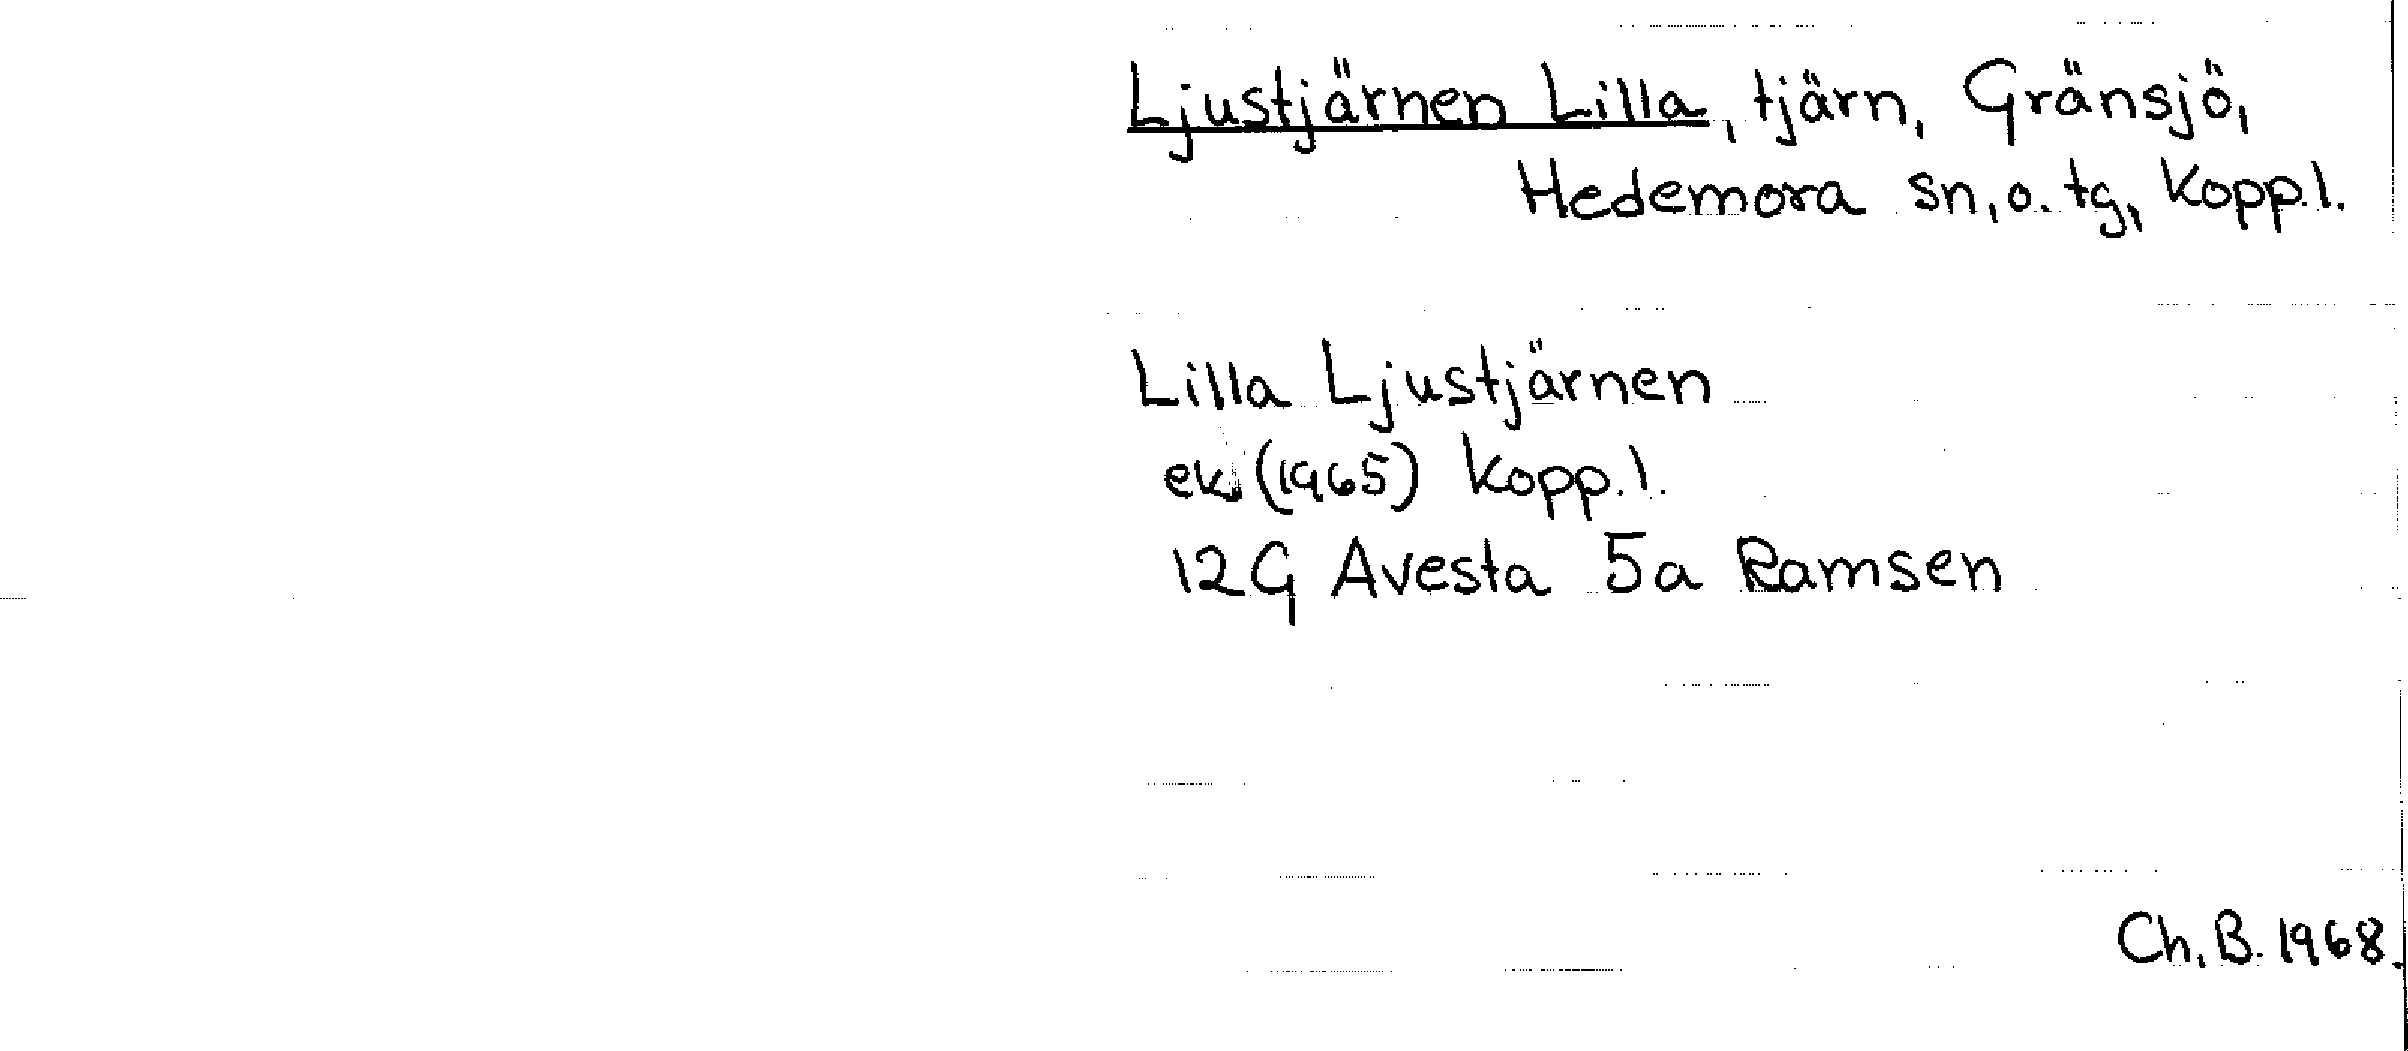 Ljustjärnen Lilla, tjärn, Gränsjö,
Hedemora sn, o. tg, Kopp.l.
Lilla Ljustjärnen
ek (1965) Kopp.l.
12G Avesta 5a Ramsen
Ch. B. 1968.